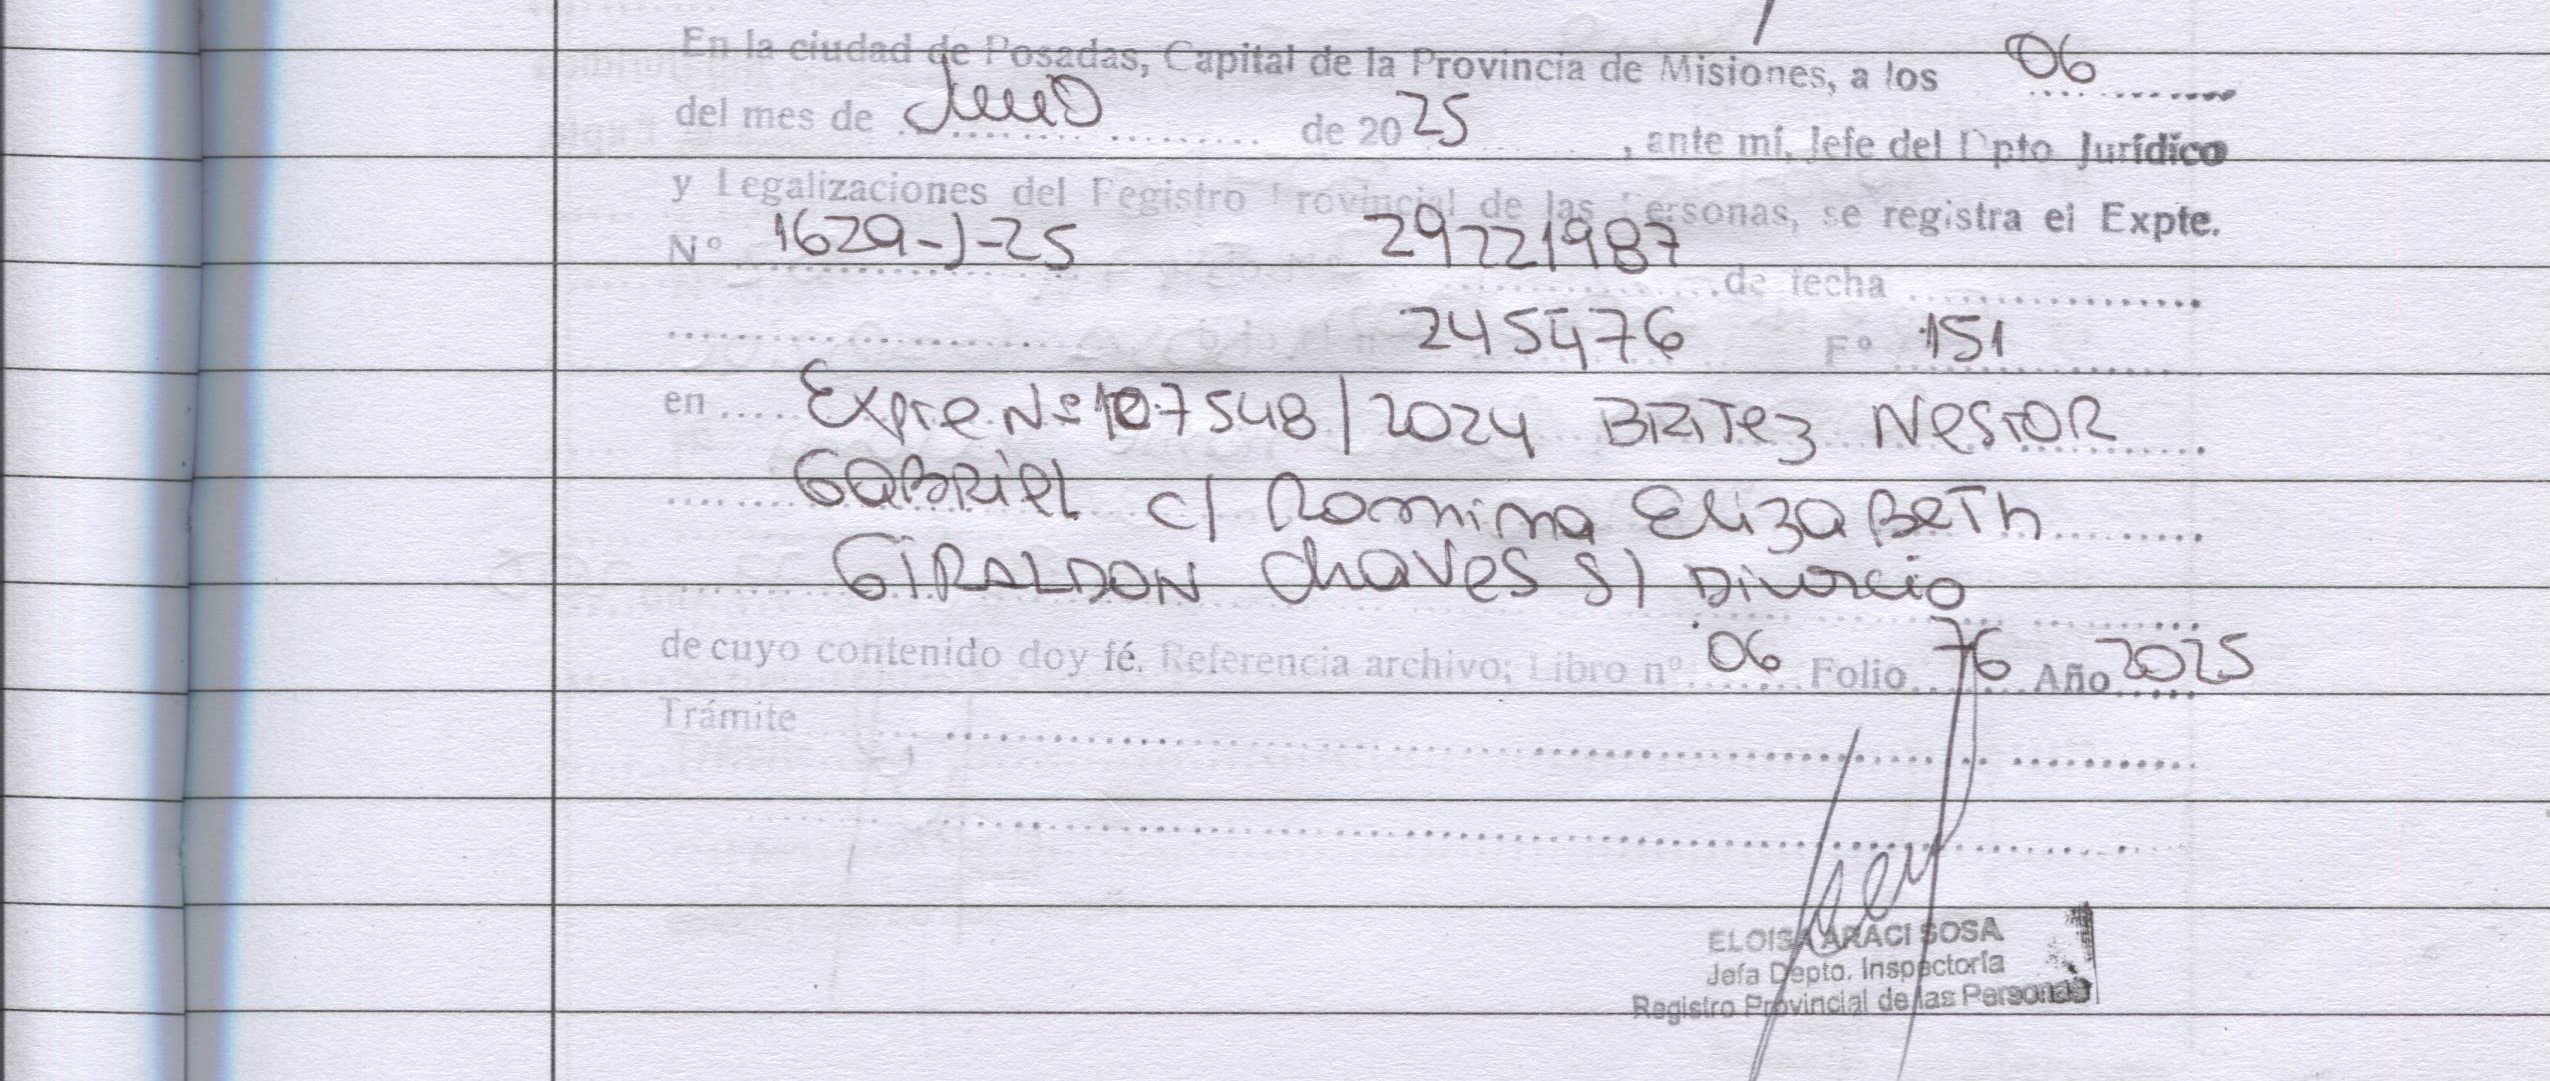 En la ciudad de Posadas, Capital de la Provincia de Misiones, a los 06
del mes de Junio de 2025, ante mí, Jefe del Dpto Jurídico
y Legalizaciones del Registro Provincial de las Personas, se registra el Expte.
Nº 1629-J-25 29221987 de fecha
245476 Fº 151
en Expte Nº 107548/2024 BRITez NesTOR
GABRiel c/ Romina ElizaBeTh
GiRALDON Chaves S/ Divorcio
de cuyo contenido doy fé. Referencia archivo; Libro nº 06 Folio 76 Año 2025
Trámite
ELOISA ARACI SOSA
Jefa Depto. Inspectoría
Registro Provincial de las Personas